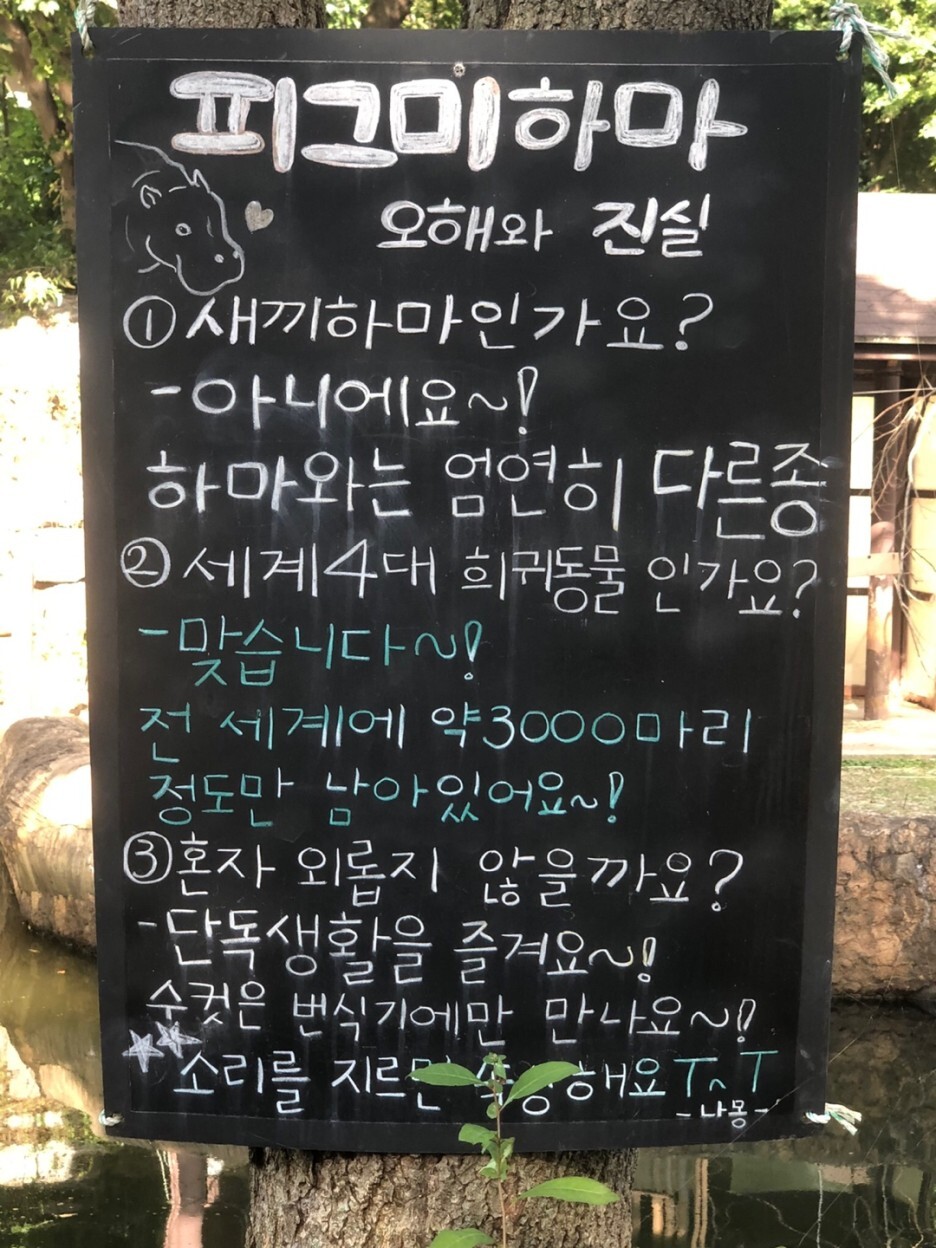 피그미하마
오해와 진실
① 새끼하마인가요?
-아니에요~!
하마와는 엄연히 다른종
② 세계4대 희귀동물 인가요?
-맞습니다~!
전 세계에 약3000마리
정도만 남아있어요~!
③ 혼자 외롭지 않을까요?
-단독생활을 즐겨요~!
수컷은 번식기에만 만나요~!
소리를 지르면 해요 T^T
-나몽-